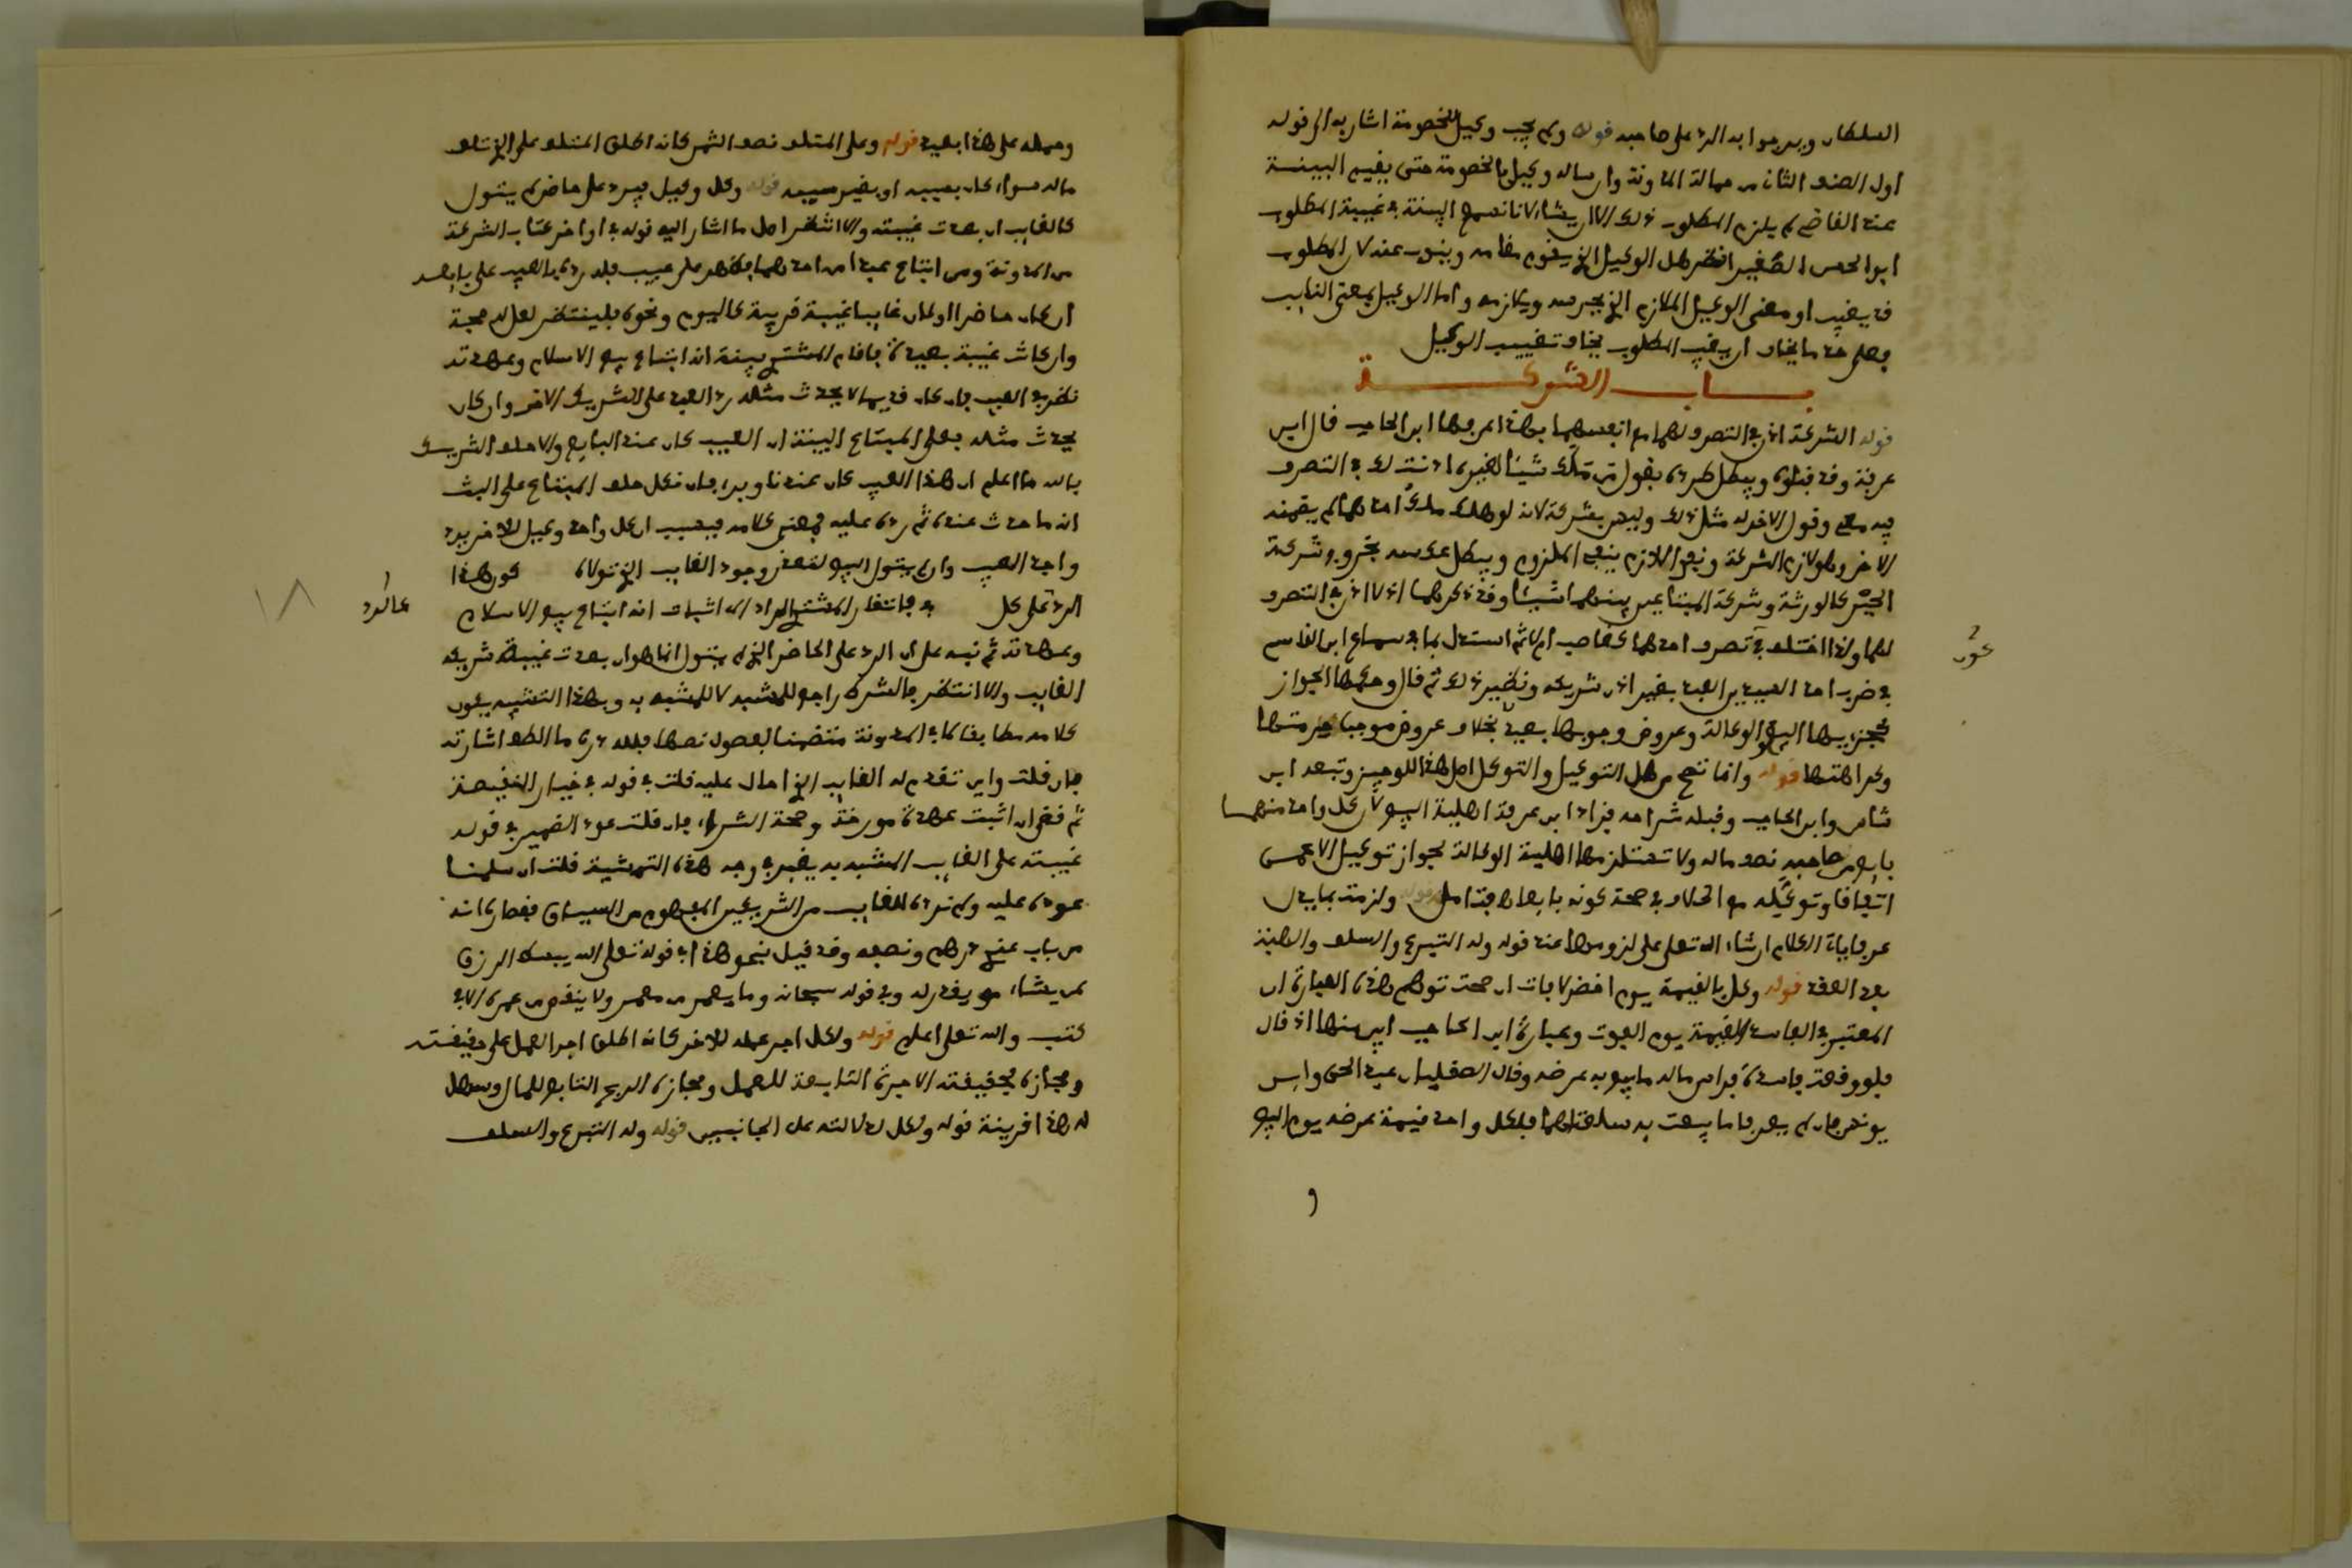 السلطان وبرجوا به الرد على صاحبه قوله ولم يجب وكيل للخصومة اشار به الى قوله
اول الصنف الثاني من حمالة المدونة وارساله وكيل بالخصومة حتى يقيم البينة
عند القاضي لم يلزم المطلوب ذلك الا ان يشاء لانا نسمع البينة في غيبة المطلوب
ابو الحسن الصغير انظر هل الوكيل الذي يقوم مقامه وينوب عنه لان المطلوب
قد يغيب او معنى الوكيل الملازم الذي يحرسه ويلازمه واما الوكيل بمعنى النائب
فعلى حد ما يخاف ان يغيب المطلوب يخاف تغييب الوكيل
باب الشركة
قوله الشركة اذن في التصرف لهما مع انفسهما بهذا عرفها ابن الحاجب قال ابن
عرفة وقد قبلوه ويبطل طرده بقول من ملك شيئا لغيره اذنت لك في التصرف
فيه معي وقول الاخر له مثل ذلك وليس بشركة لانه لو هلك ملك احدهما لم يضمنه
الاخر وهو لازم الشركة ونفي اللازم ينفي الملزوم ويبطل عكسه بخروج شركة
الجبر كالورثة وشركة المبتاعين بينهما شيئا وقد ذكرهما اذ لا اذن في التصرف
لهما ولذا اختلف في تصرف احدهما كغاصب ام لا ثم استدل بما في سماع ابن القاسم
في ضرب احد السيدين العبد بغير اذن شريكه ونظير ذلك ثم قال وحكمها الجواز
كجزئيها البيع والوكالة وعروض وجوبها بعيد بخلاف عروض موجب حرمتها
وكراهتها قوله وانما تصح من اهل التوكيل والتوكل اصل هذا للوجيز وتبعه ابن
شاس وابن الحاجب وقبله شراحه فزاد ابن عرفة اهلية البيع لان كل واحد منهما
بايع من صاحبه نصف ماله ولا تستلزمها اهلية الوكالة لجواز توكيل الاعمى
اتفاقا وتوكيله مع الخلاف في صحة كونه بايعا فتامل قوله ولزمت بما يدل
عرفا ياتي الكلام ان شاء الله تعلى على لزومها عند قوله وله التبرع والسلف والهبة
بعد العقد قوله وكل بالقيمة يوم احضر لا فات ان صحت توهم هذه العبارة ان
المعتبر في الفاسدة القيمة يوم الفوت وعبارة ابن الحاجب ابين منها اذ قال
فلو وقعت فاسدة فراس ماله ما بيع به عرضه وقال الصقليان عبد الحق وابن
يونس فان لم يعرفا ما بيعت به سلعتاهما فلكل واحد قيمة عرضه يوم البيع
و
عور
وحمله على هذا بعيد قوله وعلى المتلف نصف الثمن كانه اطلق المتلف على الذي تلف
ماله سواء كان بسببه او بغير سببه قوله وكل وكيل فيرد على حاضر لم يتول
كالغايب ان بعدت غيبته والا انتظر اصل ما اشار اليه قوله في اواخر كتاب الشركة
من المدونة ومن ابتاع عبدا من احدهما فظهر على عيب فله رده بالعيب على بايعه
ان كان حاضرا او كان غايبا غيبة قريبة كاليوم ونحوه فلينتظر لعل له حجة
وان كانت غيبة بعيدة فاقام المشتري بينة انه ابتاع بيع الاسلام وعهدته
نظر في العيب فان كان قديما لا يحدث مثله رد العبد على الشريك الاخر وان كان
يحدث مثله فعلى المبتاع البينة ان العيب كان عند البايع والا حلف الشريك
بالله ما اعلم ان هذا العيب كان عندنا ويبرا فان نكل حلف المبتاع على البت
انه ما حدث عنده ثم رده عليه فمعنى كلامه فبسبب ان كل واحد وكيل للاخر يرد
واجد العيب وان لم يتول البيع لتعذر وجود الغايب الذي تولاه كور هذا
الرد على كل به فانتقار المشتري المراد الى اثبات انه ابتاع بيع الاسلام
وعهدته ثم نبه على ان الرد على الحاضر الذي لم يتول انما هو ان بعدت غيبة شريكه
الغايب والا انتظر فالشرط راجع للمشبه لا للمشبه به وبهذا التنبيه يكون
كلامه مطابقا لما في المدونة متضمنا لفصول نصها فلله دره ما الطف اشارته
فان قلت واين تقدم له الغايب الذي احال عليه قلت في قوله في خيار النقيصة
ثم قضى ان اثبت عهدة مورخة وصحة الشراء فان قلت عود الضمير في قوله
غيبته على الغايب المشبه به يغير في وجه هذه التمشية قلت ان سلمنا
عوده عليه ولم نرده للغايب من الشريكين المفهوم من السياق فقصاراه انه
من باب عندي درهم ونصفه وقد قيل بنحو هذا في قوله تعلى الله يبسط الرزق
لمن يشاء ويقدر له وفي قوله سبحانه وما يعمر من معمر ولا ينقص من عمره الا في
كتب والله تعلى اعلم قوله ولكل اجر عمله للاخر كانه اطلق اجر العمل على حقيقته
ومجازه فحقيقته الاجرة التابعة للعمل ومجازه الربح التابع للمال وسهل
له هذا قرينة قوله ولكل لدلالته على الجانبين قوله وله التبرع والسلف
كالرد
١٨